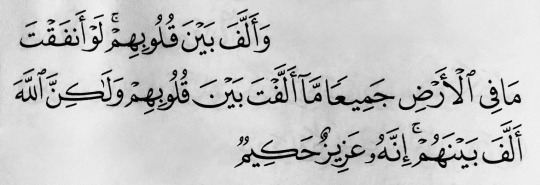 وَأَلَّفَ بَيْنَ قُلُوبِهِمْ ۚ لَوْ أَنفَقْتَ
مَا فِى ٱلْأَرْضِ جَمِيعًا مَّآ أَلَّفْتَ بَيْنَ قُلُوبِهِمْ وَلَـٰكِنَّ ٱللَّهَ
أَلَّفَ بَيْنَهُمْ ۚ إِنَّهُۥ عَزِيزٌ حَكِيمٌ